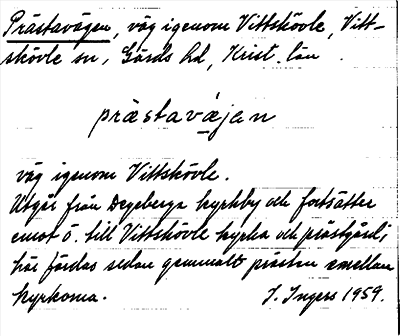 Prästavägen, väg igenom Vittskövle, Vitt-
skövle sn, Gärds hd, Krist. län.
prästavä̱jan
väg igenom Vittskövle.
Utgår från Degeberga kyrkby och fortsätter
emot ö. till Vittskövle kyrka och prästgård;
här färdas sedan gammalt prästen emellan
kyrkorna. I. Ingers 1959.